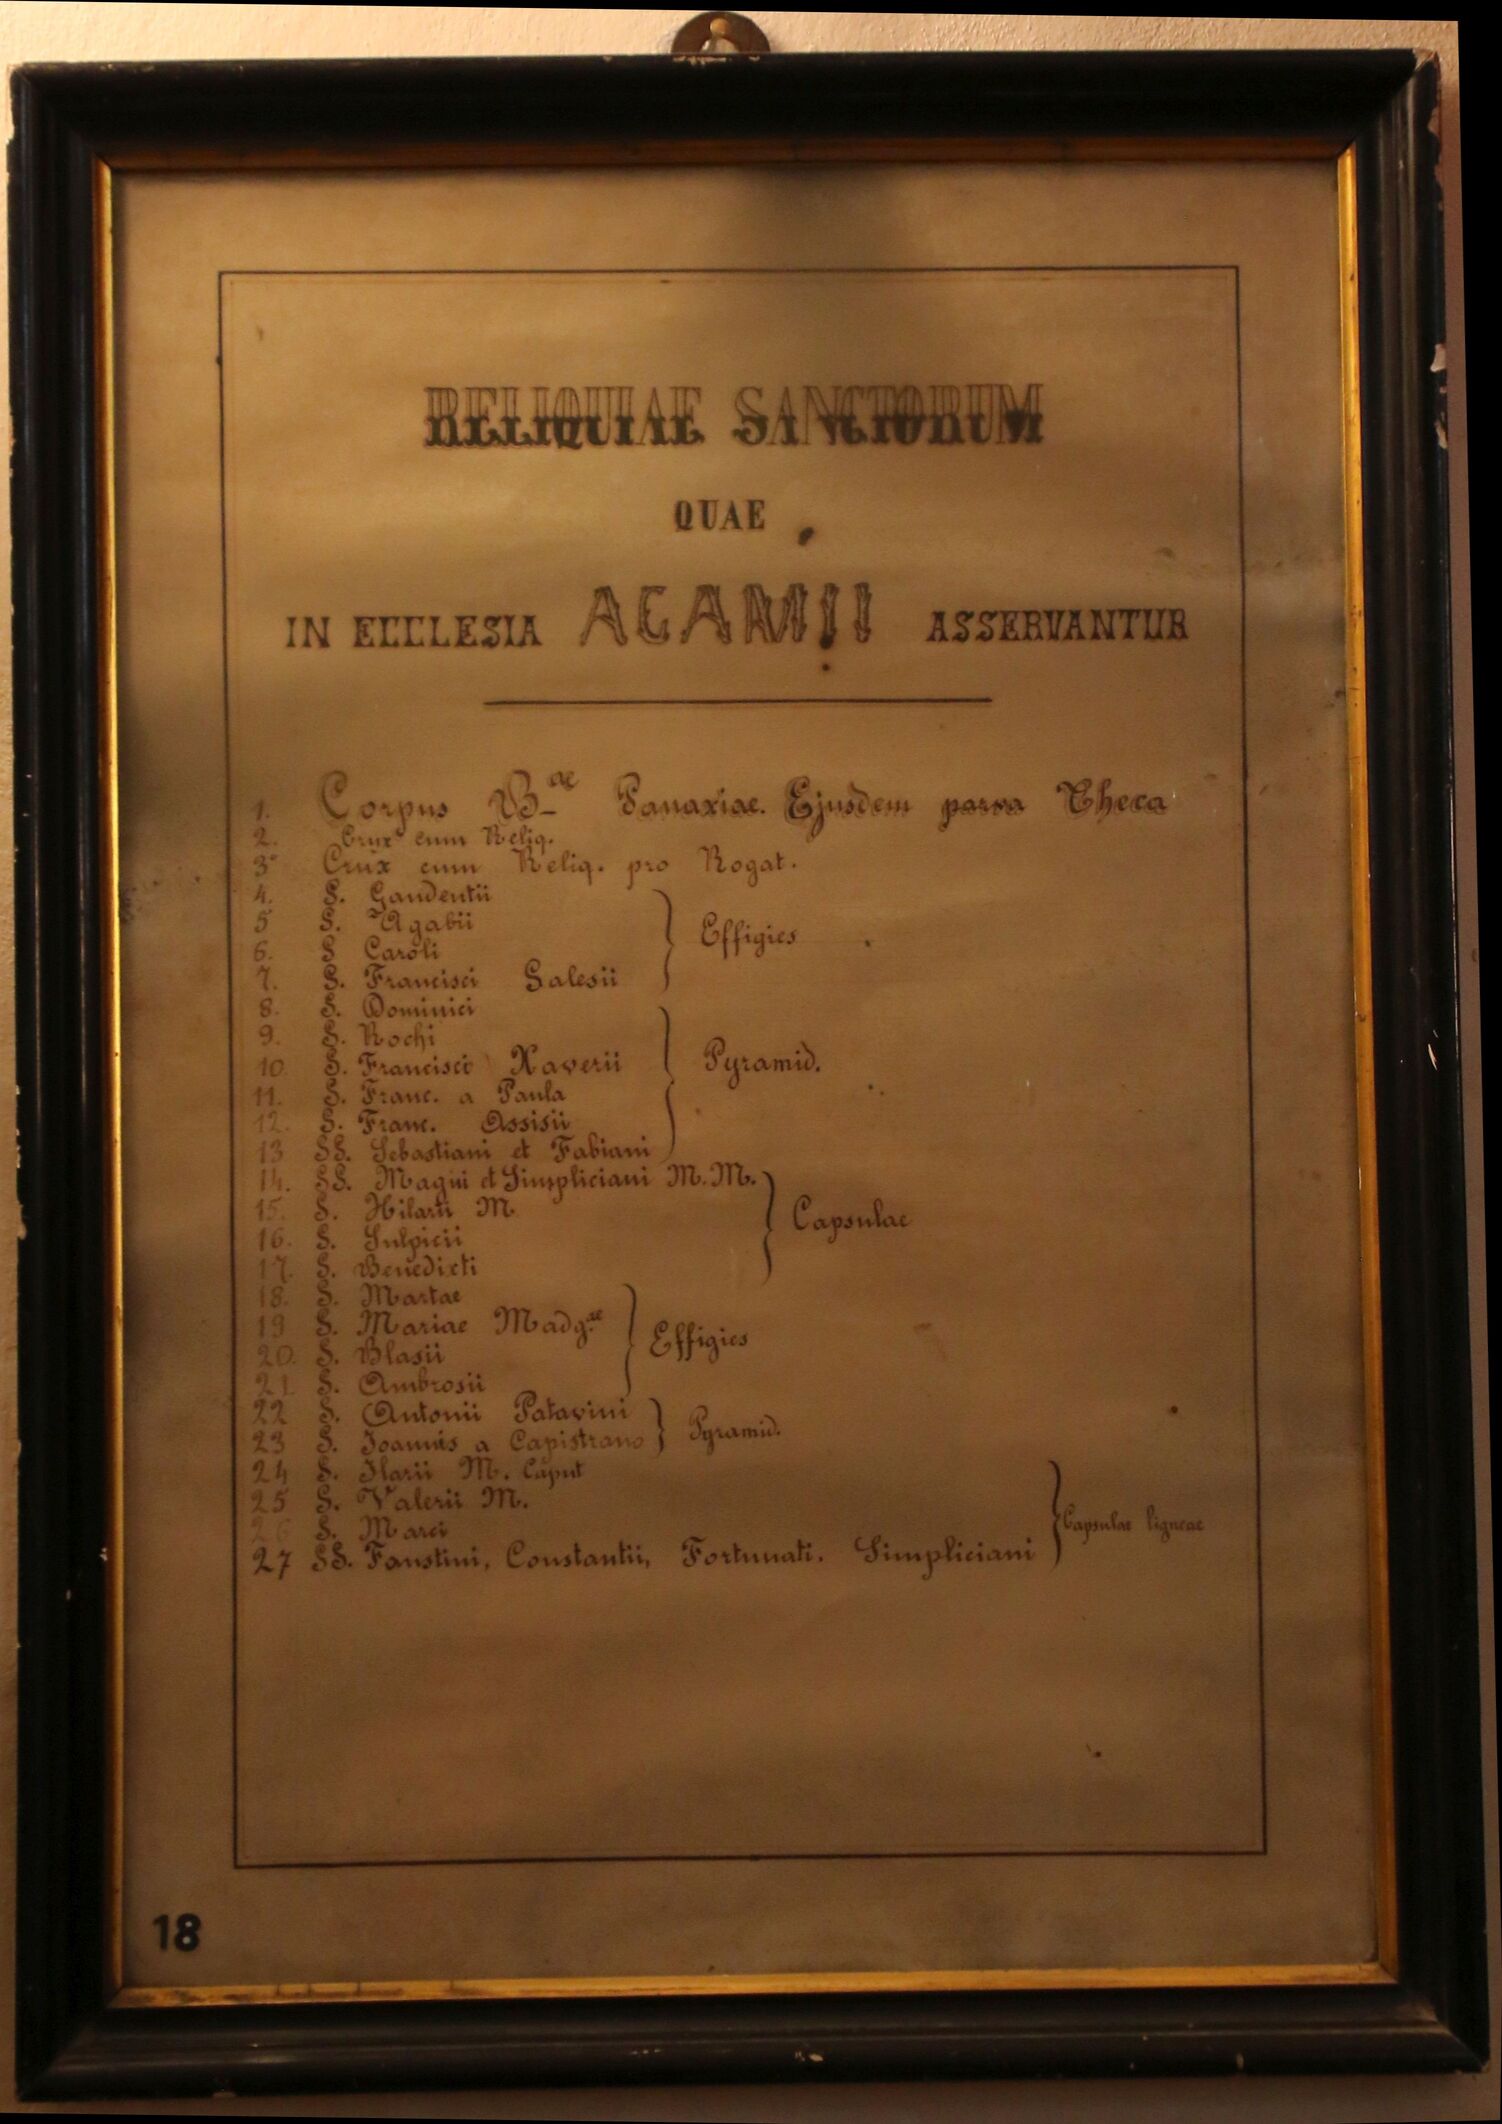 RELIQUIAE SANCTORUM
QUAE
IN ECCLESIA AGAMII ASSERVANTUR
1. Corpus B.ae Panaxiae. Ejusdem parva Theca
2. Crux cum Reliq.
3° Crux cum Reliq. pro Rogat.
4. S. Gaudentii
5 S. Agabii
6. S Caroli
7. S. Francisci Salesii
Effigies
8. S. Dominici
9. S. Rochi
10 S. Francisci Xaverii
11. S. Franc. a Paula
12. S. Franc. Assisii
13 SS. Sebastiani et Fabiani
Pyramid.
14. SS. Magni et Simpliciani M. M.
15. S. Hilarii M
16. S. Sulpicii
17. S. Benedicti
Capsulae
18. S. Martae
19 S. Mariae Madg.ae
20. S. Blasii
21 S. Ambrosii
Effigies
22 S. Antonii Patavini
23 S. Joannis a Capistrano
Pyramid.
24 S. Ilarii M. Caput
25 S. Valerii M.
26 S. Marci
27 SS. Faustini, Constantii, Fortunati. Simpliciani
Capsulae ligneae
18